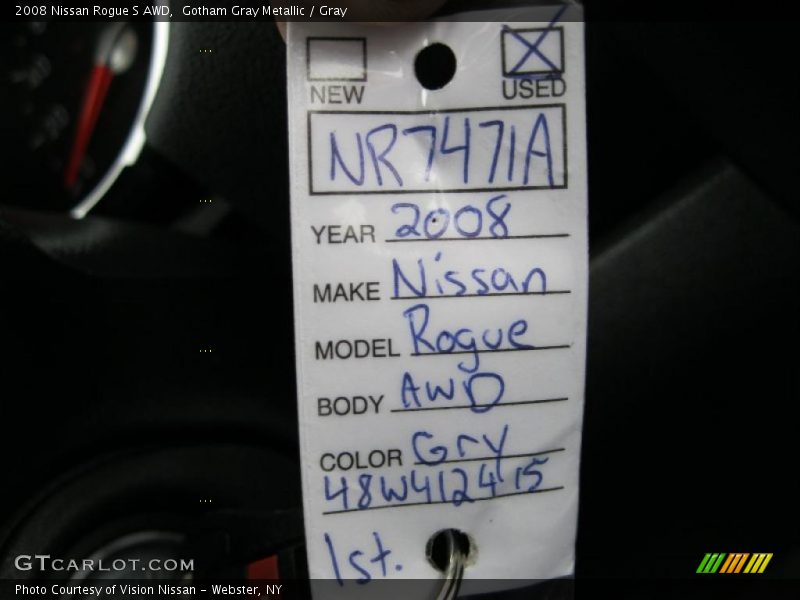 2008 Nissan Rogue S AWD,  Gotham Gray Metallic / Gray
NEW
USED
NR7471A
YEAR 2008
MAKE Nissan
MODEL Rogue
BODY AWD
COLOR Gry
48W412415
1st.
GTCARLOT.COM
Photo Courtesy of Vision Nissan - Webster, NY